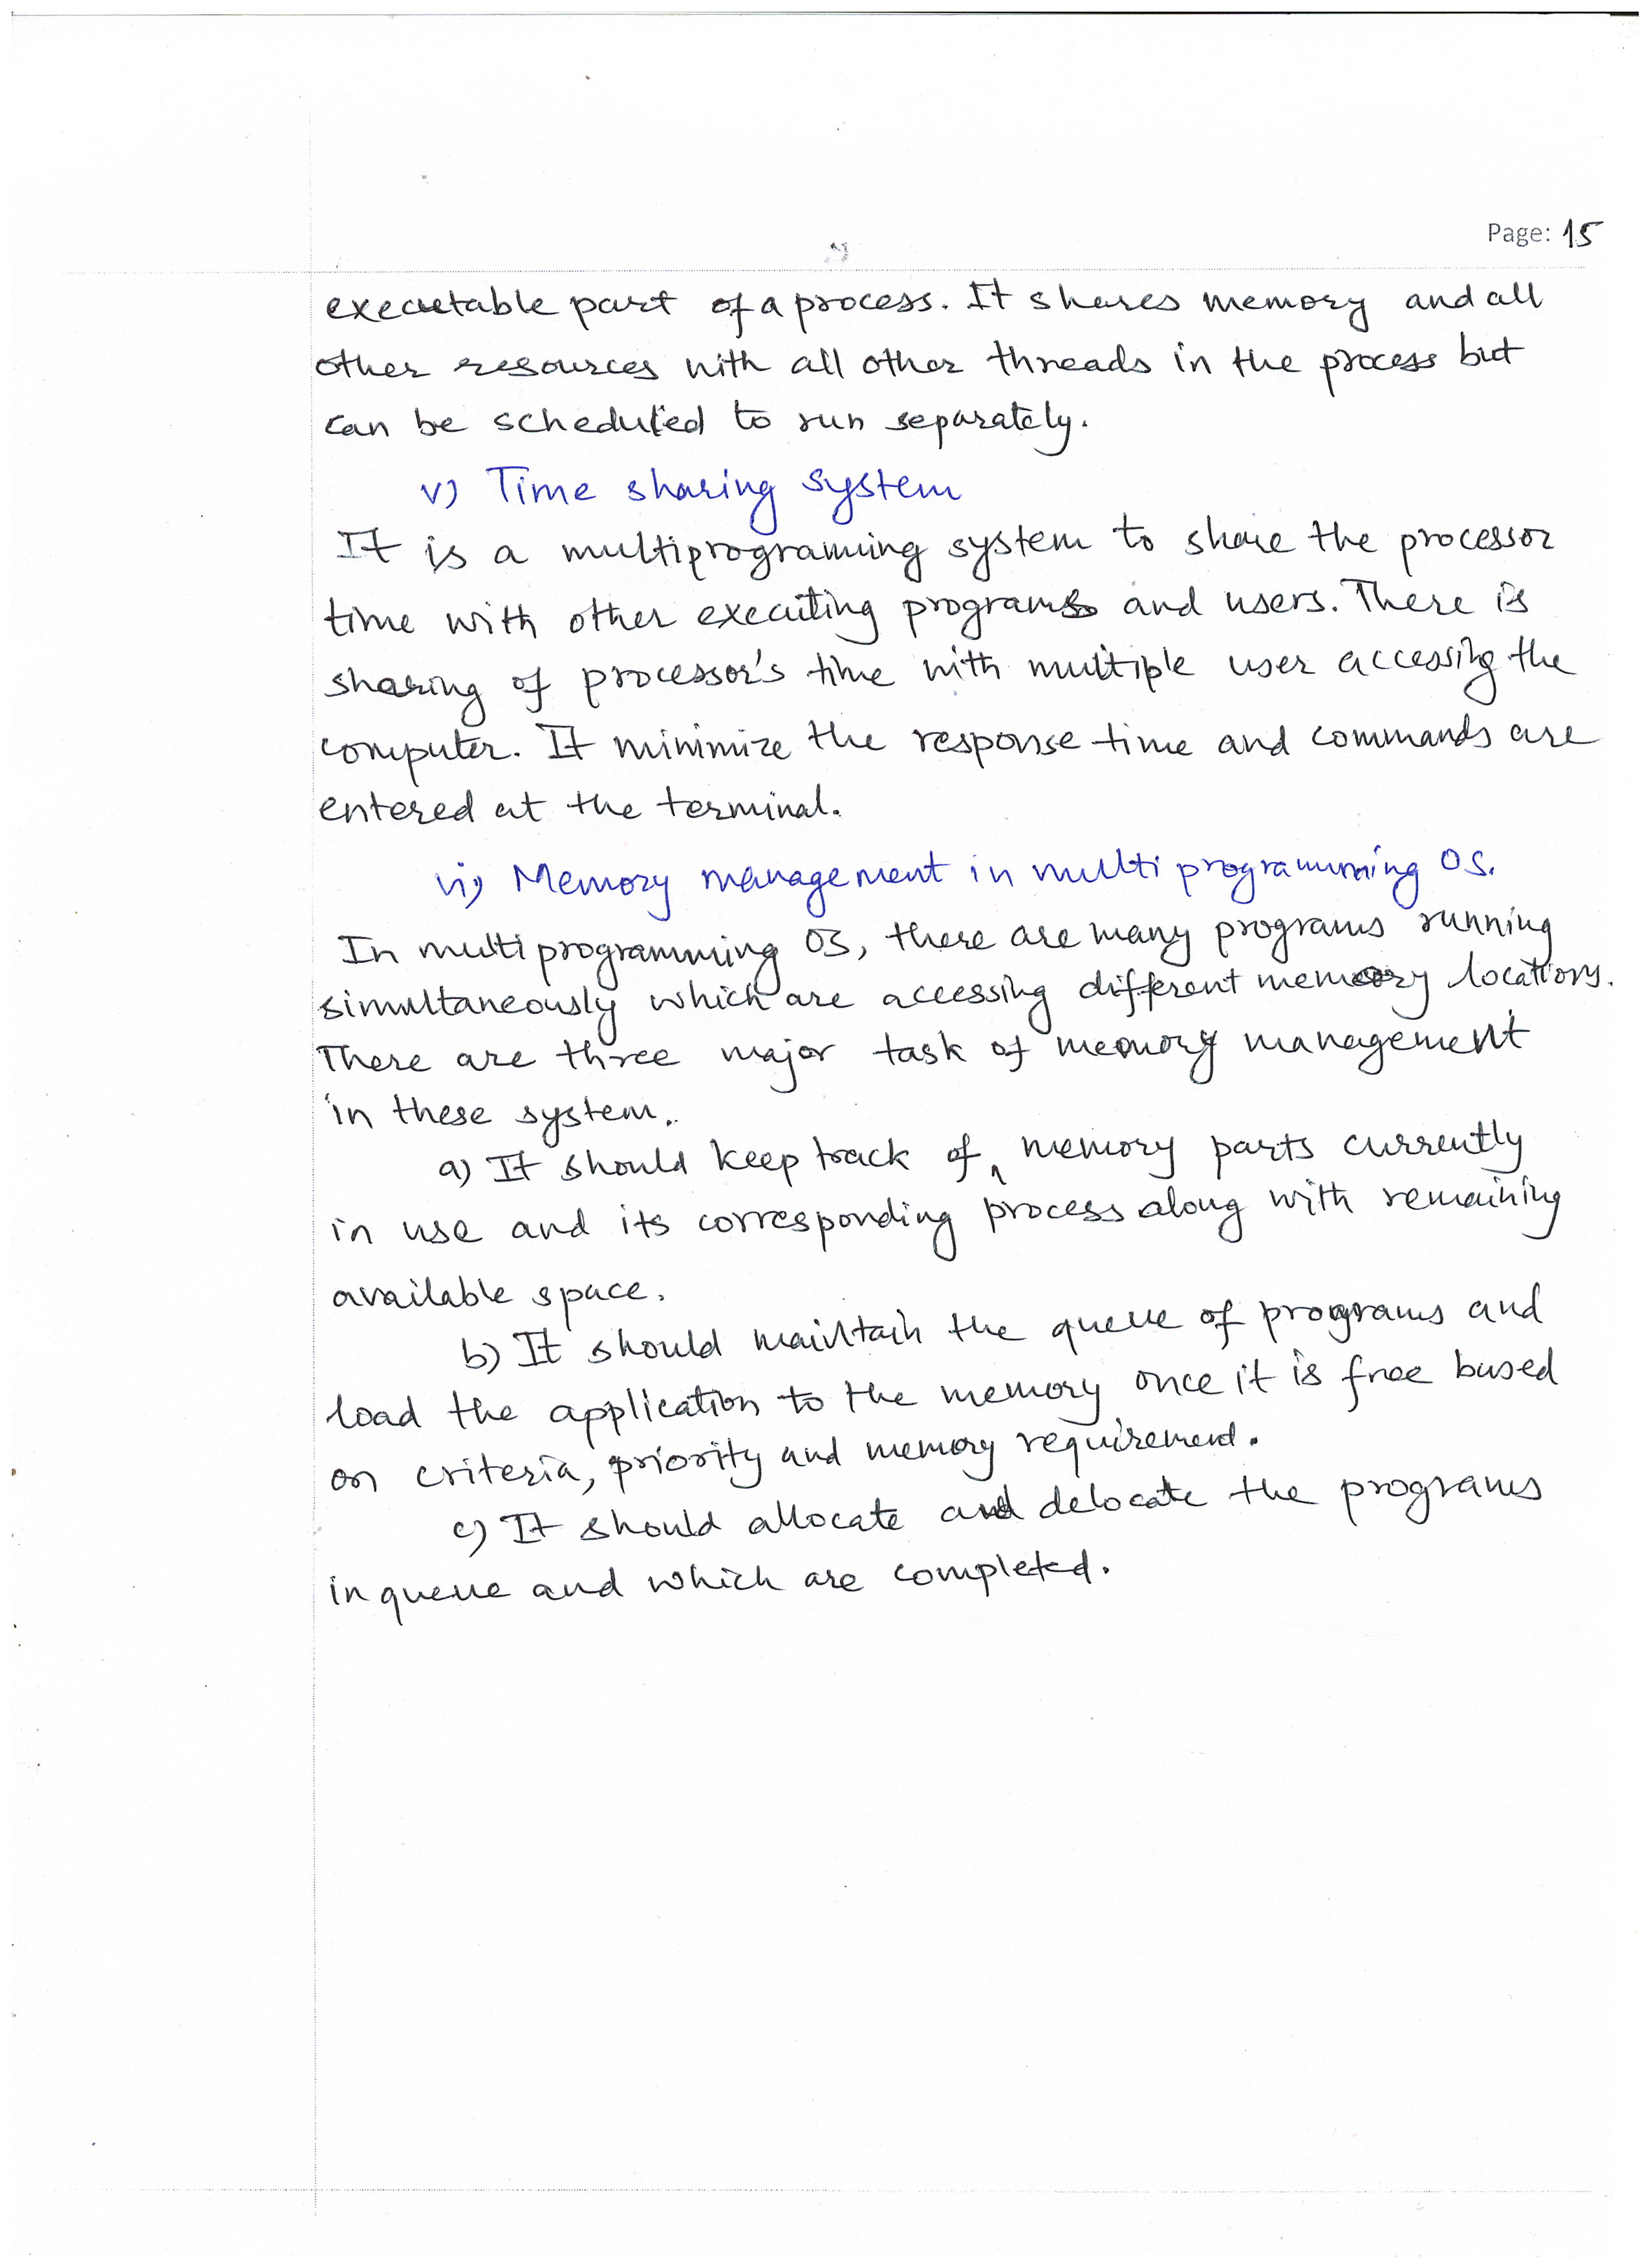 Page: 15
executable part of a process. It shares memory and all
other resources with all other threads in the process but
can be scheduled to run separately.
v) Time sharing system
It is a multiprograming system to share the processor
time with other executing programs and users. There is
sharing of processor's time with multiple user accessing the
computer. It minimize the response time and commands are
entered at the terminal.
vi) Memory management in multi programming OS.
In multi programming OS, there are many programs running
simultaneously which are accessing different memory locations.
There are three major task of memory management
in these system.
a) It should keep track of memory parts currently
in use and its corresponding process along with remaining
available space.
b) It should maintain the queue of programs and
load the application to the memory once it is free based
on criteria, priority and memory requirement.
c) It should allocate and delocate the programs
in queue and which are completed.